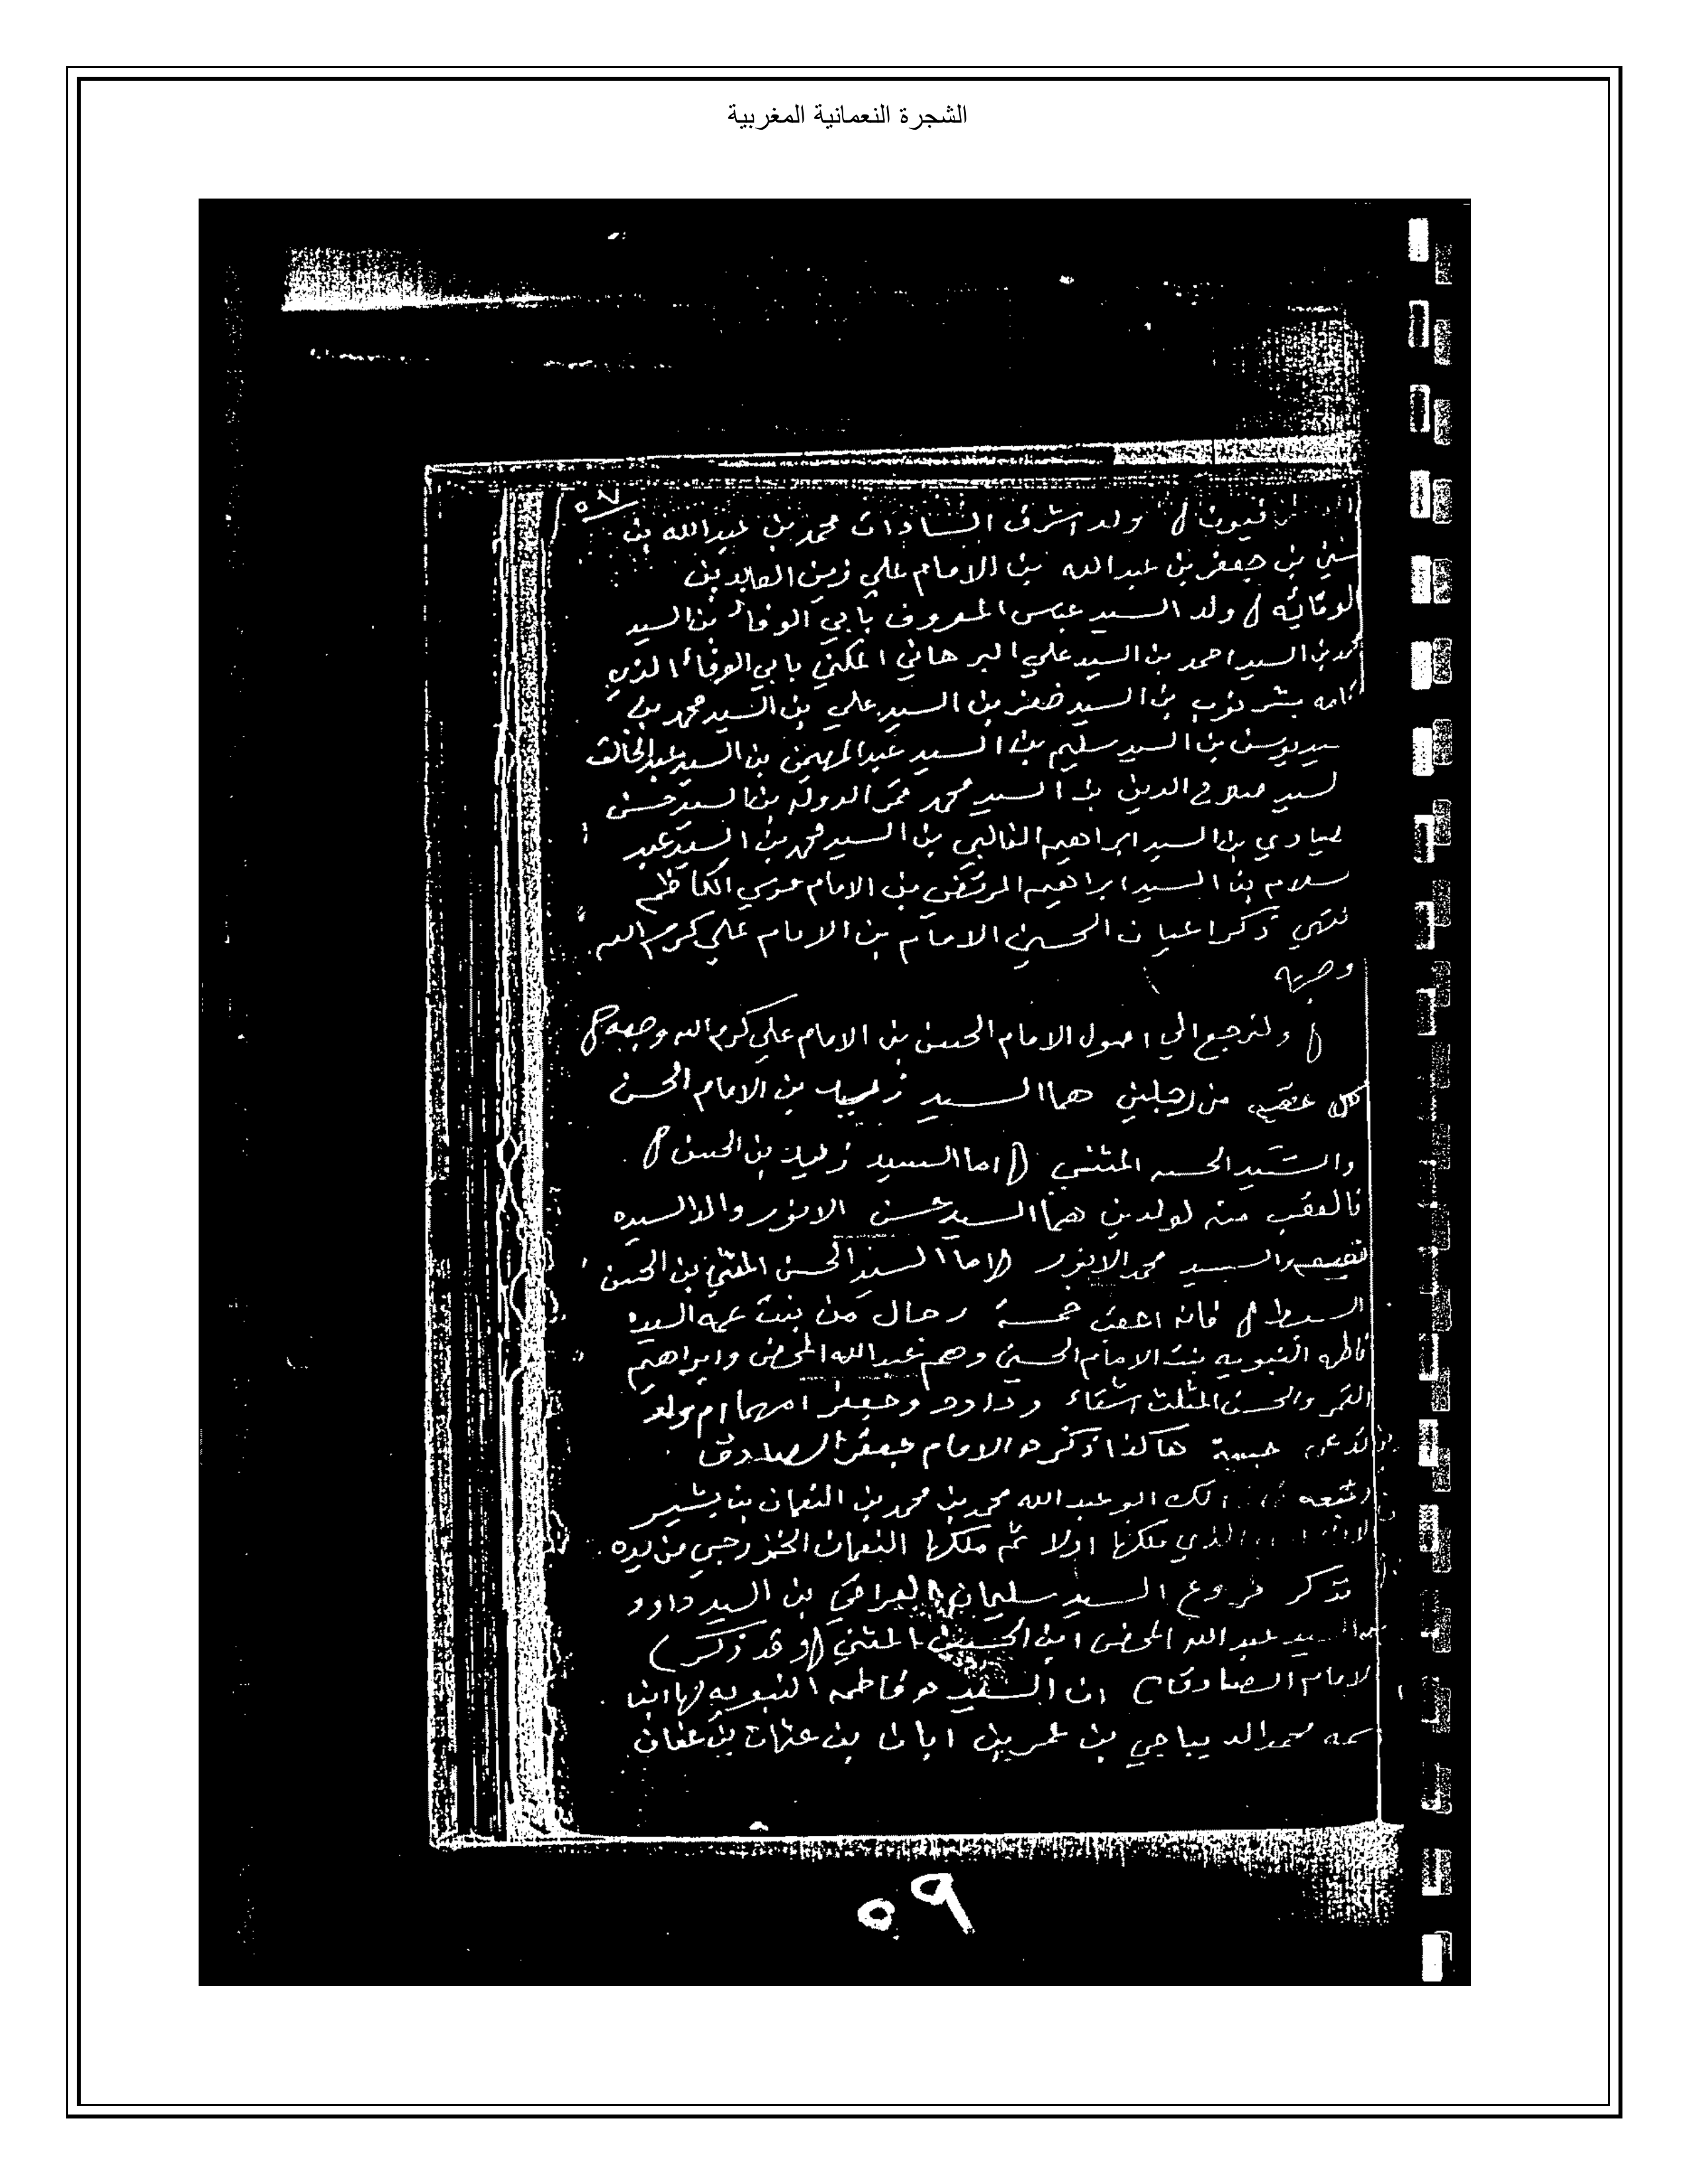 الشجرة النعمانية المغربية
٥٧
ولد اشرف السادات محمد بن عبدالله بن
بن جعفر بن عبدالله بن الامام علي زين العابدين
الوفائيه ولد السيد عباس المعروف بابي الوفاء بن السيد
محمد بن السيد احمد بن السيد علي البرهاني المكني بابي الوفاء الذي
بن السيد بن السيد علي بن السيد محمد بن
بن السيد سليم بن السيد عبد المهيمن بن السيد عبدالخالق
لسيد صلاح الدين بن السيد محمد الدوله بن السيد حسن
بن السيد ابراهيم بن السيد محمد بن السيد عبد
سلام بن السيد ابراهيم المرتضى بن الامام موسي الكاظم
نتهي ذكر اعيان الحسين الامام بن الامام علي كرم الله
وجهه
ولنرجع الي اصول الامام الحسن بن الامام علي كرم الله وجهه
من رجلين هما السيد زيد بن الامام الحسن
والسيد الحسن المثني اما السيد زيد بن الحسن
فالعقب منه لولدين هما السيد حسن الانور والد السيده
نفيسه والسيد محمد الانور اما السيد الحسن المثني بن الحسن
السبط فانه اعقب خمسة رجال من بنت عمه السيده
فاطمه النبويه بنت الامام الحسين وهم عبدالله المحض وابراهيم
الغمر والحسن المثلث اشقاء وداود وجعفر امهما ام ولد
حبيبة هاكذا ذكره الامام جعفر الصادق
ابو عبد الله محمد بن محمد بن النعمان بن بشير
الذي ملكها اولا ثم ملكها النعمان الخزرجي من يده
نذكر فروع السيد سليمان بن السيد داود
السيد عبد الله المحض ابن الحسن المثني (وقد ذكر)
لامام الصادق) ان السيده فاطمه النبويه لها ابنا
سمه محمد الديباجي بن عمر بن ابان بن عثمان بن عفان
٥٩